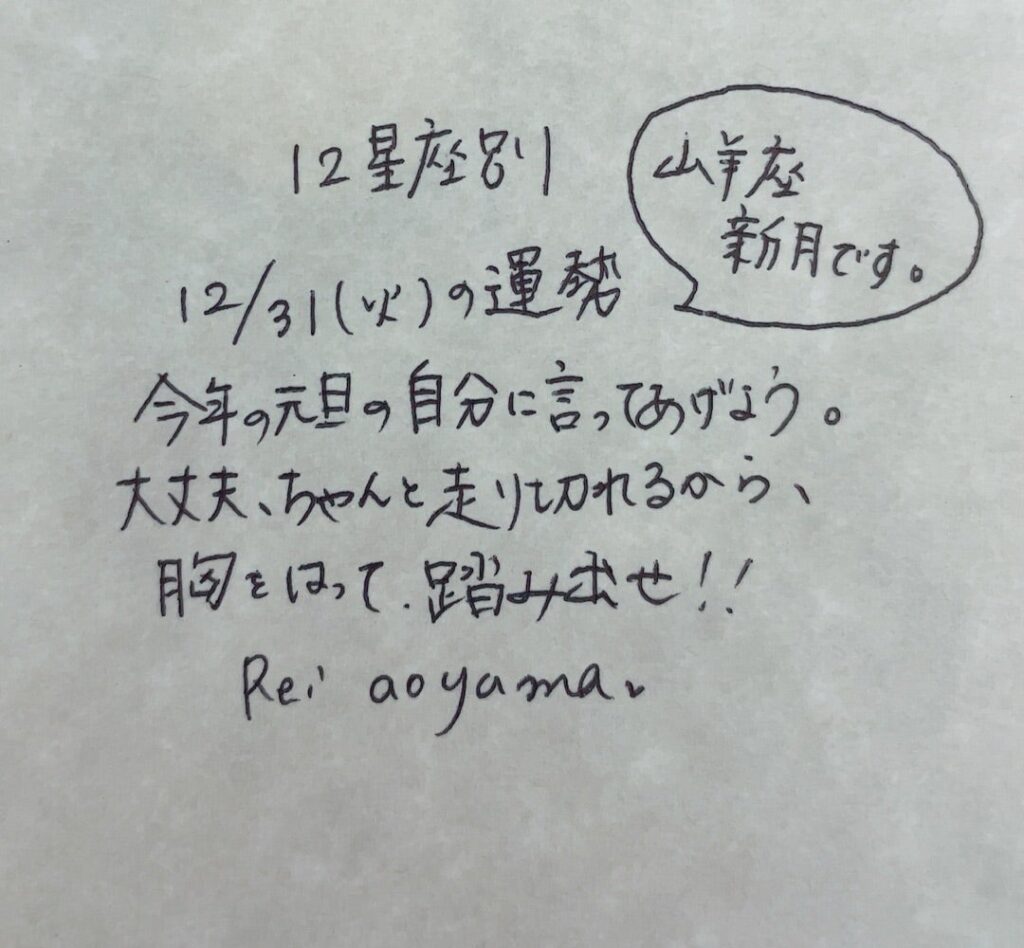 12星座別
山羊座
新月です。
12/31(火)の運勢
今年の元旦の自分に言ってあげよう。
大丈夫、ちゃんと走り切れるから、
胸をはって、踏み出せ!!
Rei aoyama.